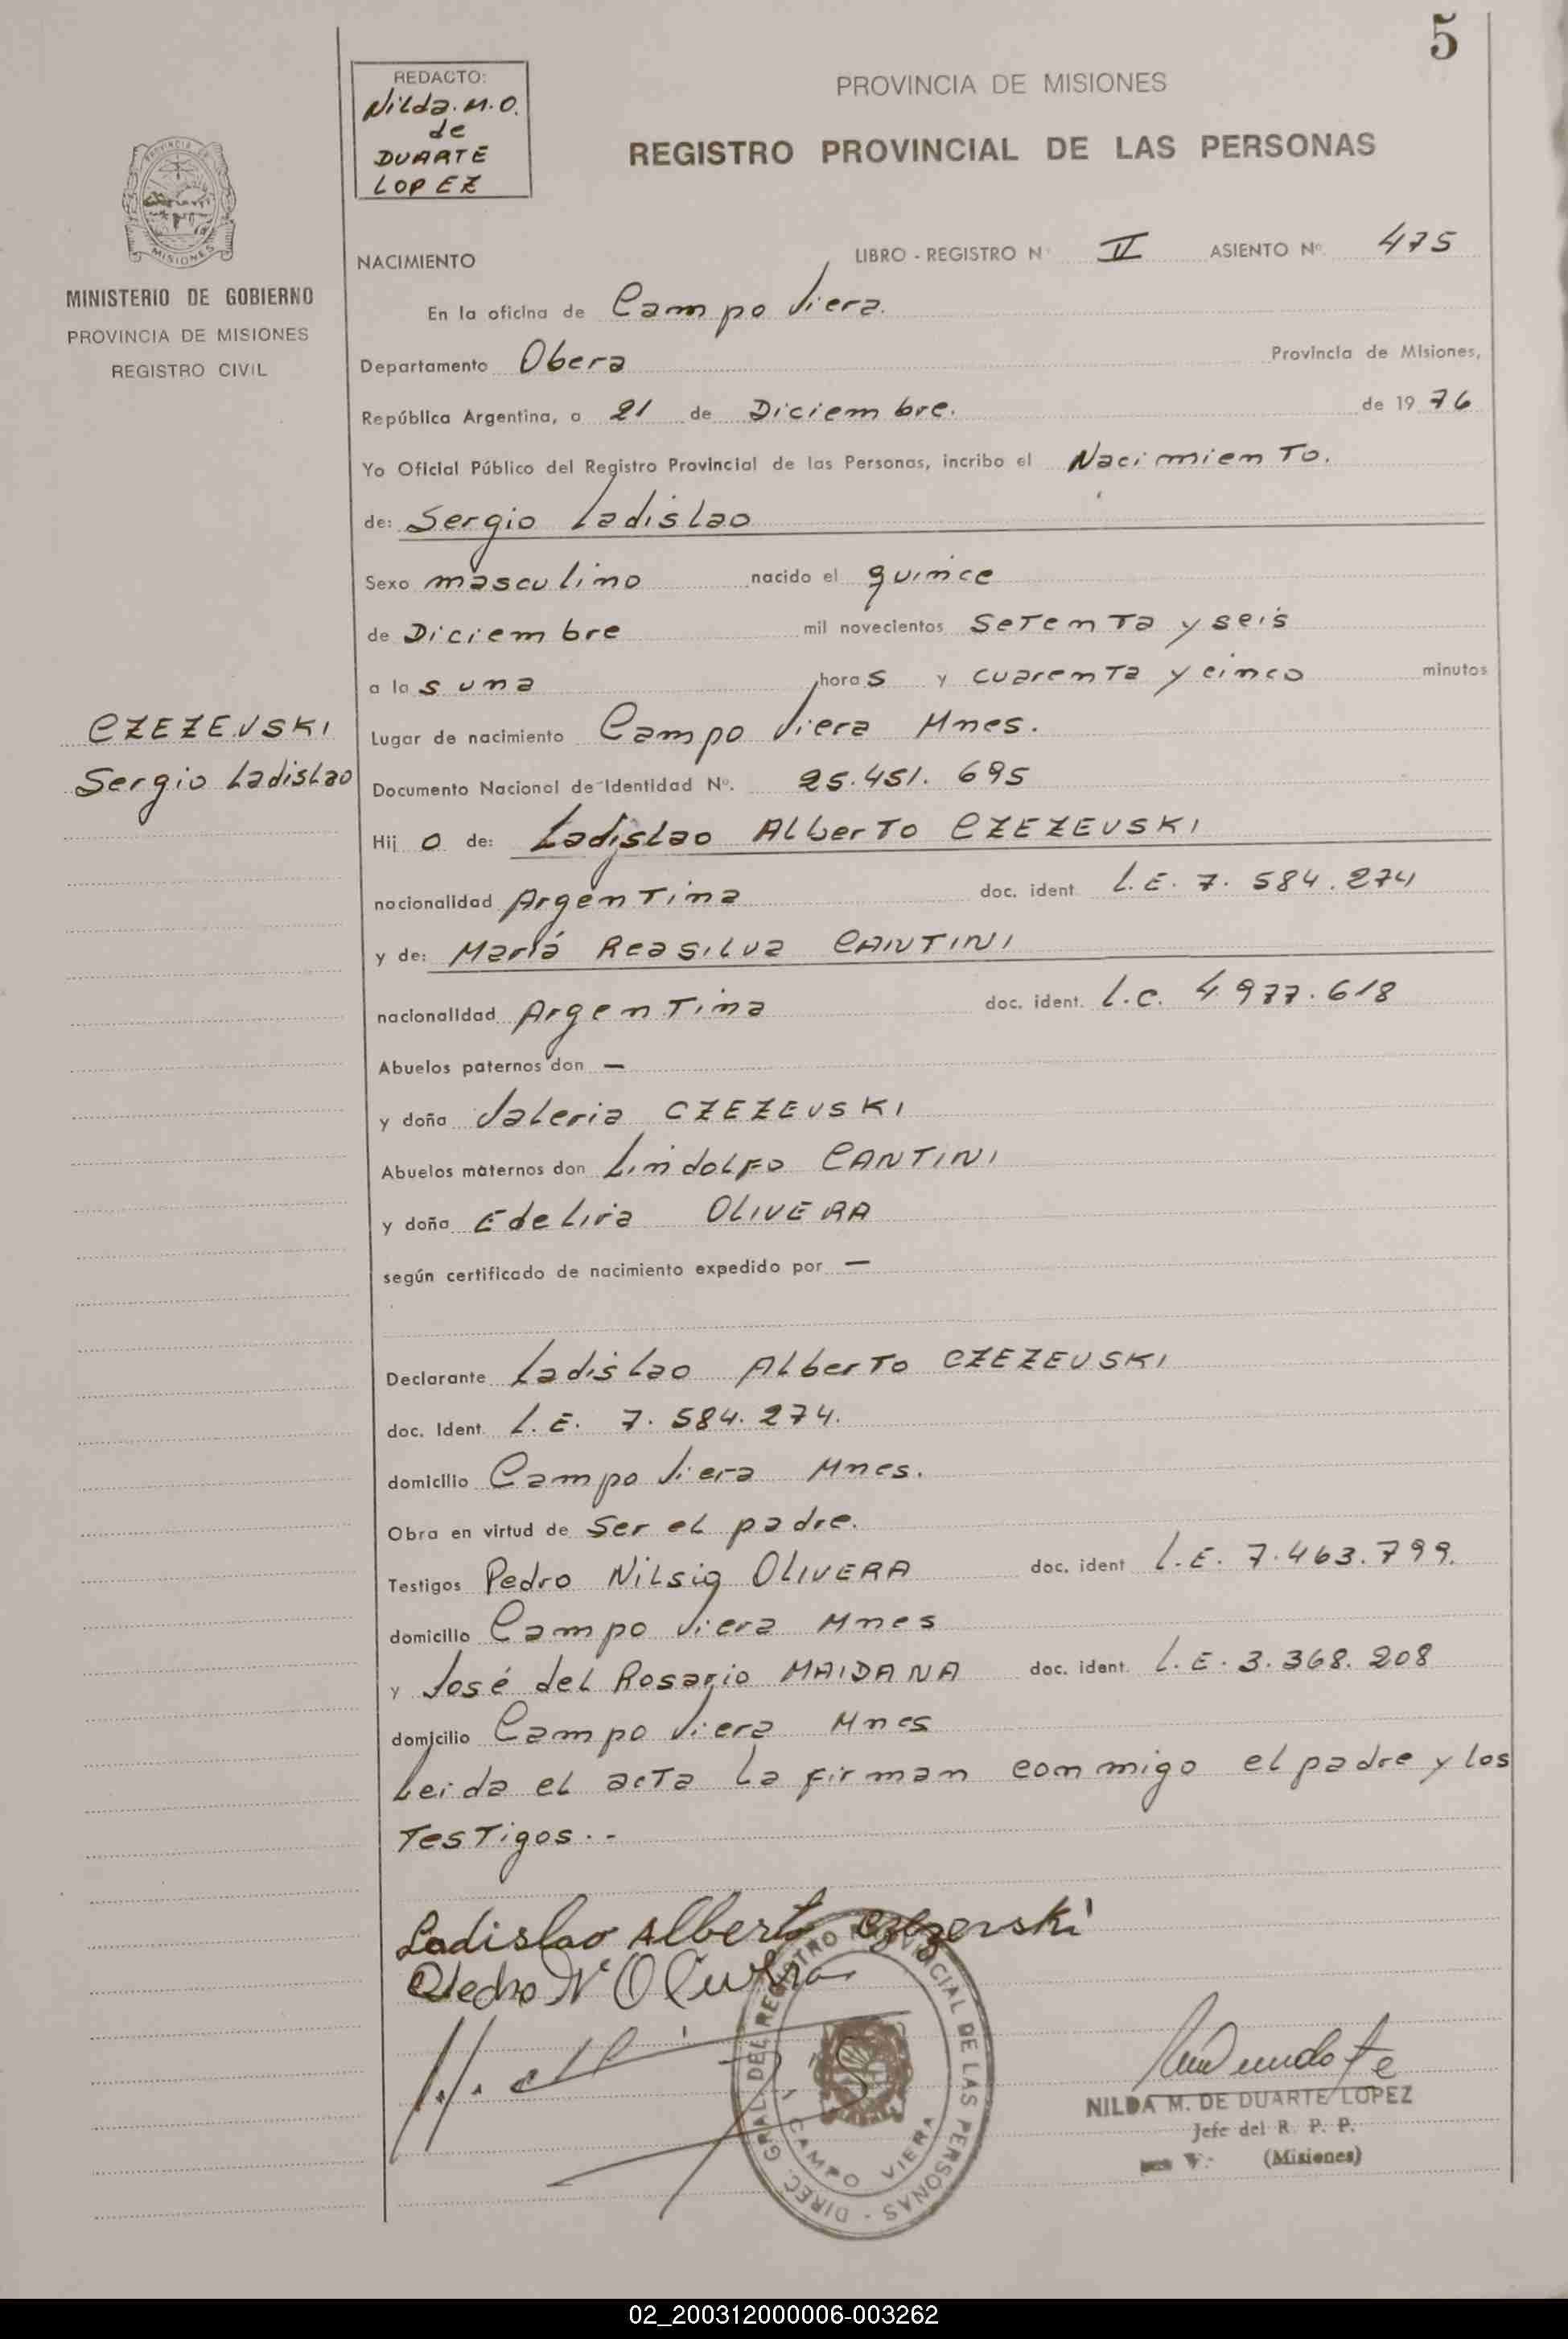 5
REDACTO:
Nilda. M. O.
de
DUARTE
LOPEZ
PROVINCIA DE MISIONES
REGISTRO PROVINCIAL DE LAS PERSONAS
MISIONES
MINISTERIO DE GOBIERNO
PROVINCIA DE MISIONES
REGISTRO CIVIL
NACIMIENTO LIBRO - REGISTRO Nº II ASIENTO Nº 475
En la oficina de Campo Viera.
Departamento Obera Provincia de Misiones,
República Argentina, a 21 de Diciembre. de 1976
Yo Oficial Público del Registro Provincial de las Personas, incribo el Nacimiento.
de: Sergio Ladislao
Sexo masculino nacido el quince
de Diciembre mil novecientos setenta y seis
a las una horas y cuarenta y cinco minutos
CZEZEVSKI
Sergio Ladislao
Lugar de nacimiento Campo Viera Mnes.
Documento Nacional de Identidad Nº. 25.451.695
Hijo de: Ladislao Alberto CZEZEVSKI
nacionalidad Argentina doc. ident. L.E. 7.584.274
y de: María Reasilva CANTINI
nacionalidad Argentina doc. ident. L.C. 4.977.618
Abuelos paternos don —
y doña Valeria CZEZEVSKI
Abuelos maternos don Lindolfo CANTINI
y doña OLIVERA
según certificado de nacimiento expedido por —
Declarante Ladislao Alberto CZEZEVSKI
doc. Ident. L.E. 7.584.274.
domicilio Campo Viera Mnes.
Obra en virtud de Ser el padre.
Testigos Pedro Nilsig OLIVERA doc. ident L.E. 7.463.799.
domicilio Campo Viera Mnes
y José del Rosario MAIDANA doc. ident. L.E. 3.368.208
domicilio Campo Viera Mnes
Leida el acta la firman conmigo el padre y los
Testigos.-
Ladislao Alberto Czezevski
Pedro N Olivera
DIREC. GRAL. DEL REGISTRO PROVINCIAL DE LAS PERSONAS -
CAMPO VIERA
NILDA M. DE DUARTE LOPEZ
Jefe del R. P. P.
(Misiones)
02_200312000006-003262